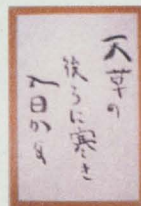 天草の
後ろに寒き
入日かな